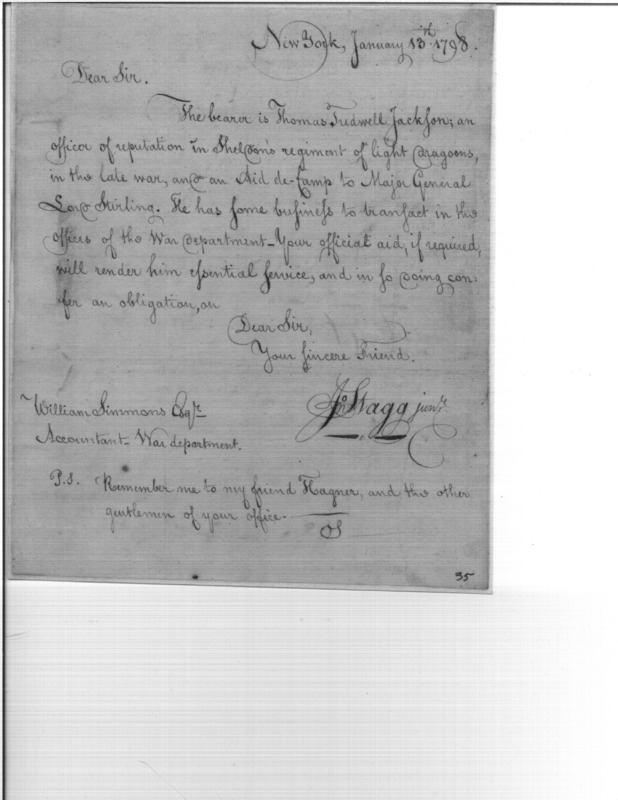 New York, January 13th 1798.
Dear Sir.
The bearer is Thomas Tredwell Jackson; an
officer of reputation in Sheldon's regiment of light dragoons,
in the late war, and an Aid de-Camp to Major General
Lord Stirling. He has some business to transact in the
offices of the War department_Your official aid, if required,
will render him essential service, and in so doing con:
fer an obligation, on
Dear Sir,
Your sincere Friend.
Jno Stagg junr.
William Simmons Esqr.
Accountant_ War department.
P.S. Remember me to my friend Hagner, and the other
gentlemen of your office._
JS
35